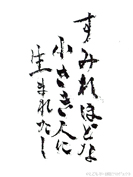 すみれほどな
小さき人に
生まれたし